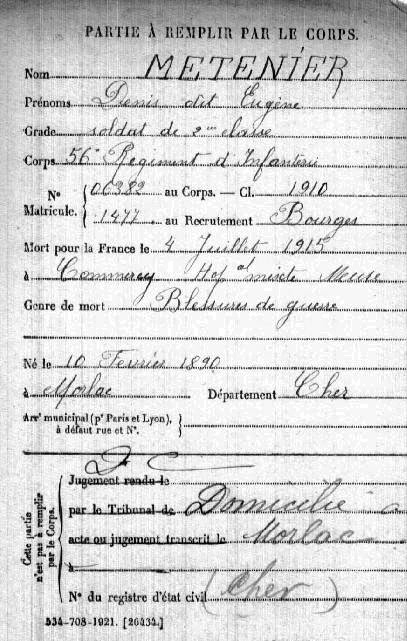 PARTIE À REMPLIR PAR LE CORPS.
Nom METENIER
Prénoms Denis dit Eugène
Grade soldat de 2me classe
Corps 56e Régiment d'Infanterie
N° 06282 au Corps. — Cl. 1910
Matricule. 1477 au Recrutement Bourges
Mort pour la France le 4 Juillet 1915
à Commercy Hopal mixte Meuse
Genre de mort Blessures de guerre
Né le 10 Fevrier 1890
à Morlac Département Cher
Arrt municipal (pr Paris et Lyon),
à défaut rue et N°.
Cette partie n'est pas à remplir par le Corps.
Jugement rendu le
par le Tribunal de Domicilié à
acte ou jugement transcrit le Morlac
à
N° du registre d'état civil (Cher)
534-708-1921. [26434.]